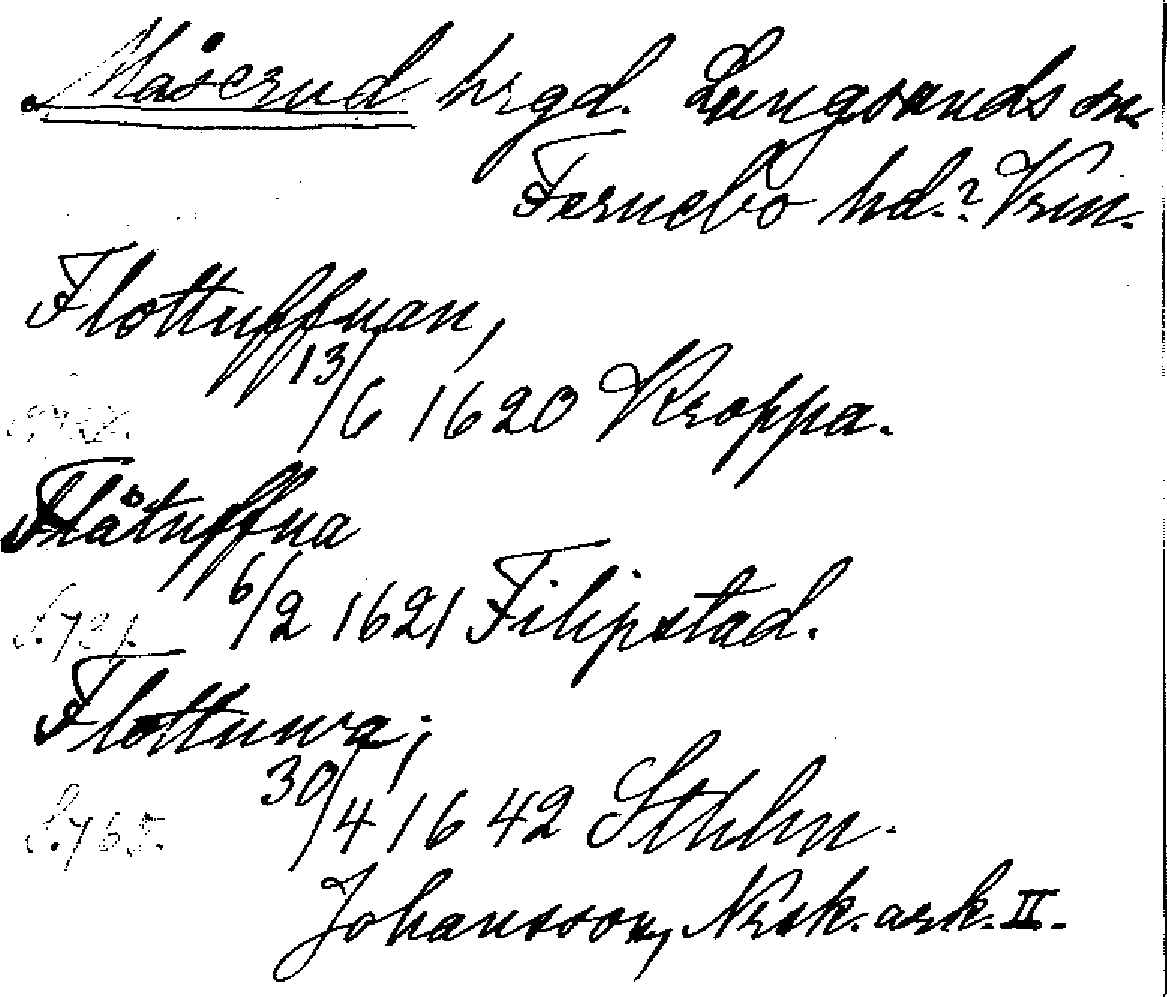 Måserud hrgd. Lungsunds sn.
Fernebo hd.? Vrm.
Flottuffuan,
13/6 1620 Kroppa.
Flåtuffua
6/2 1621 Filipstad.
S. 721.
Flottuwa;
30/4 1642 Sthlm.
S. 765.
Johansson, Norsk. ark. II.